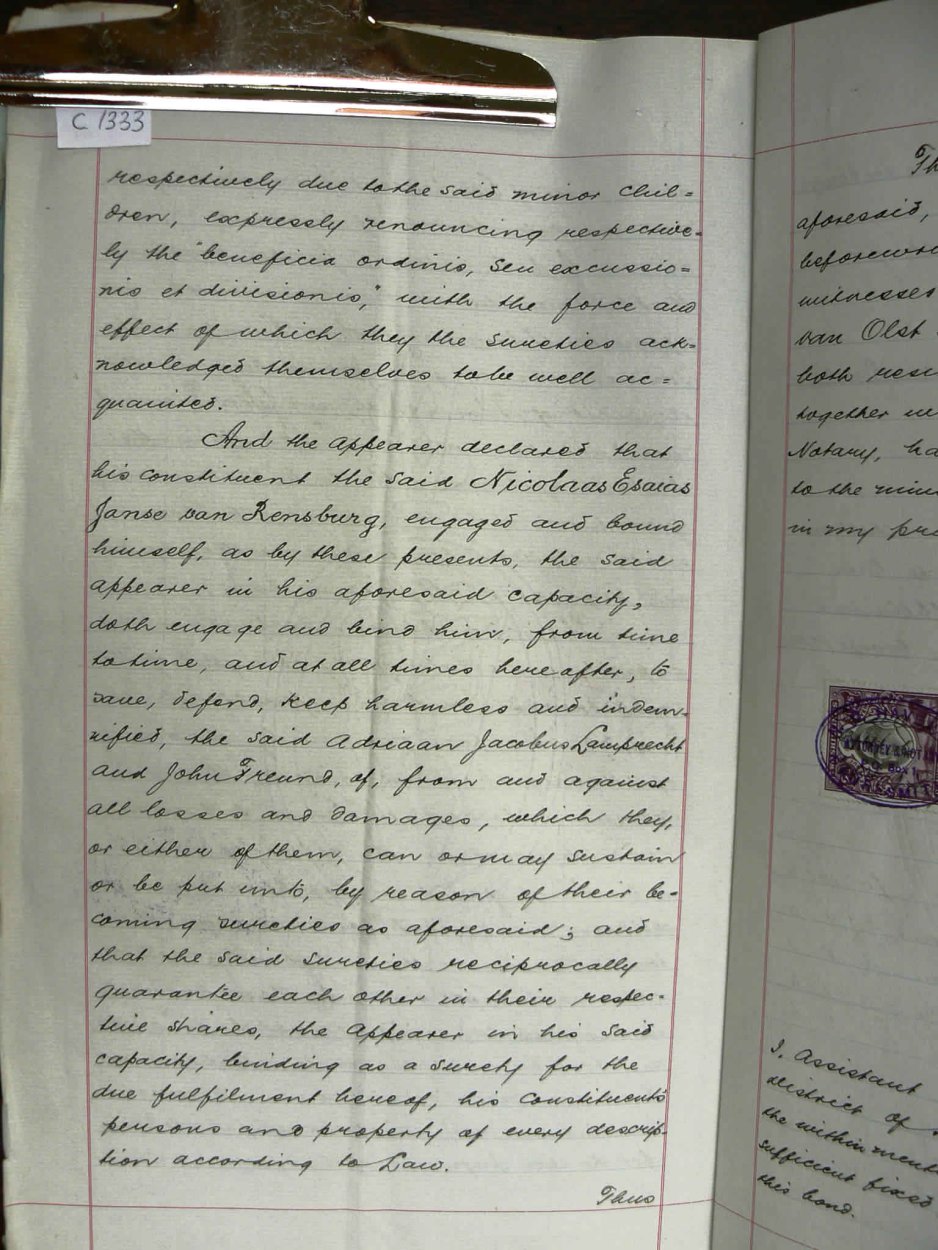 C 1333
respectively due to the said minor Chil=
dren, expressly renouncing respective=
ly the "beneficia ordinis, seu excussio=
nis et divisionis," with the force and
effect of which they the Sureties ack=
nowledged themselves to be well ac=
quainted.
And the appearer declared that
his constituent the said Nicolaas Esaias
Janse van Rensburg, engaged and bound
himself, as by these presents, the said
appearer in his aforesaid capacity,
doth engage and bind him, from time
to time, and at all times hereafter, to
save, defend, keep harmless and indem-
nified, the said Adriaan Jacobus Lamprecht
and John Freund, of, from and against
all losses and damages, which they,
or either of them, can or may sustain
or be put unto, by reason of their be-
coming sureties as aforesaid; and
that the said sureties reciprocally
guarantee each other in their respec-
tive shares, the appearer in his said
capacity, binding as a surety for the
due fulfilment hereof, his Constituents'
persons and property of every descrip-
tion according to Law.
Thus
Th
aforesaid,
before
witnesses
van Olst
both resi
together w
Notary, ha
to the minu
in my pre
I. Assistant
district of
the within ment
sufficient fixed
this bond.